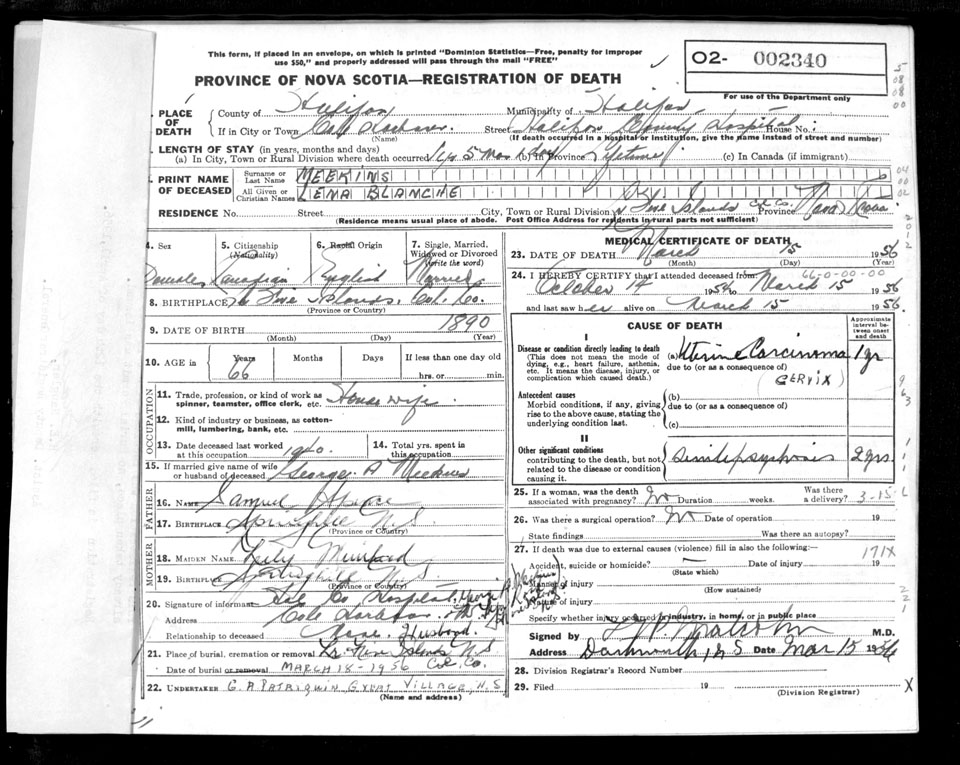 This form, if placed in an envelope, on which is printed "Dominion Statistics—Free, penalty for improper
use $50," and properly addressed will pass through the mail "FREE"
O2- 002340
For use of the Department only
PROVINCE OF NOVA SCOTIA—REGISTRATION OF DEATH
PLACE OF DEATH
County of Halifax Municipality of Halifax
If in City or Town Cole Harbour Street Halifax County Hospital House No.
(Name) (If death occurred in a hospital or institution, give the name instead of street and number)
LENGTH OF STAY (in years, months and days)
(a) In City, Town or Rural Division where death occurred 1 yr 5 mos 1 day (b) In Province Lifetime (c) In Canada (if immigrant)
PRINT NAME OF DECEASED
Surname or Last Name MEEKINS
All Given or Christian Names LENA BLANCHE
RESIDENCE No. Street City, Town or Rural Division Five Islands Col. Co. Province Nova Scotia
(Residence means usual place of abode. Post Office Address for residents in rural parts not sufficient)
4. Sex Female
5. Citizenship (Nationality) Canadian
6. Racial Origin English
7. Single, Married, Widowed or Divorced (Write the word) Married
8. BIRTHPLACE Five Islands, Col. Co.
(Province or Country)
9. DATE OF BIRTH 1890
(Month) (Day) (Year)
10. AGE in Years 66 Months Days If less than one day old hrs. or min.
OCCUPATION
11. Trade, profession or kind of work as spinner, teamster, office clerk, etc. House wife
12. Kind of industry or business, as cotton-mill, lumbering, bank, etc.
13. Date deceased last worked at this occupation 1940
14. Total yrs. spent in this occupation
15. If married give name of wife or husband of deceased George A Meekins
FATHER
16. Name Samuel
17. BIRTHPLACE Springhill N.S.
(Province or Country)
MOTHER
18. MAIDEN NAME Lily
19. BIRTHPLACE Springhill N.S.
(Province or Country)
20. Signature of informant Hal Co Hospital
Address Cole Harbour
Relationship to deceased None. Husband.
21. Place of burial, cremation or removal Five Islands N.S
Date of burial or removal MARCH 18 - 1956 Col. Co.
22. UNDERTAKER G. A PATRIQUIN GREAT VILLAGE, N.S
MEDICAL CERTIFICATE OF DEATH
23. DATE OF DEATH March 15 1956
(Month) (Day) (Year)
66-0-00-00
24. I HEREBY CERTIFY that I attended deceased from
October 14 1954 to March 15 1956
and last saw her alive on March 15 1956.
CAUSE OF DEATH
Approximate interval between onset and death
I
Disease or condition directly leading to death
(This does not mean the mode of dying, e.g., heart failure, asthenia, etc. It means the disease, injury, or complication which caused death.)
(a) Uterine Carcinoma 1 yr
due to (or as a consequence of)
(CERVIX)
Antecedent causes
Morbid conditions, if any, giving rise to the above cause, stating the underlying condition last.
(b)
due to (or as a consequence of)
(c)
II
Other significant conditions
contributing to the death, but not related to the disease or condition causing it.
Senile psychosis 2 yrs.
25. If a woman, was the death associated with pregnancy? No Duration weeks. Was there a delivery?
3-15-6
26. Was there a surgical operation? No Date of operation 19
State findings Was there an autopsy?
27. If death was due to external causes (violence) fill in also the following:—
171X
Accident, suicide or homicide? Date of injury 19
(State which)
Manner of injury
(How sustained)
Nature of injury
Specify whether injury occurred in industry, in home, or in public place
Signed by Malcolm M.D.
Address Dartmouth, N S Date Mar 15 1956
28. Division Registrar's Record Number
29. Filed 19
(Division Registrar)
X